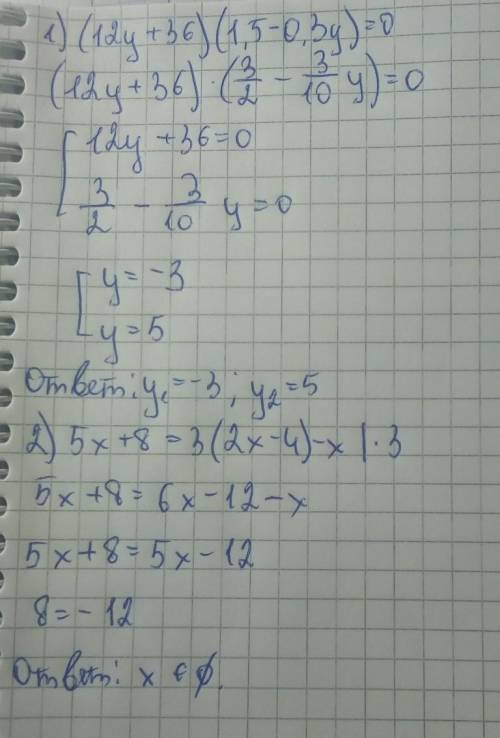 1) (12y+36)(1,5-0,3y)=0
(12y+36)·(3/2 - 3/10 y)=0
[ 12y+36=0
3/2 - 3/10 y=0
[ y=-3
y=5
Ответ: y₁=-3; y₂=5
2) 5x+8=3(2x-4)-x |·3
5x+8=6x-12-x
5x+8=5x-12
8=-12
Ответ: x ∈ ∅.